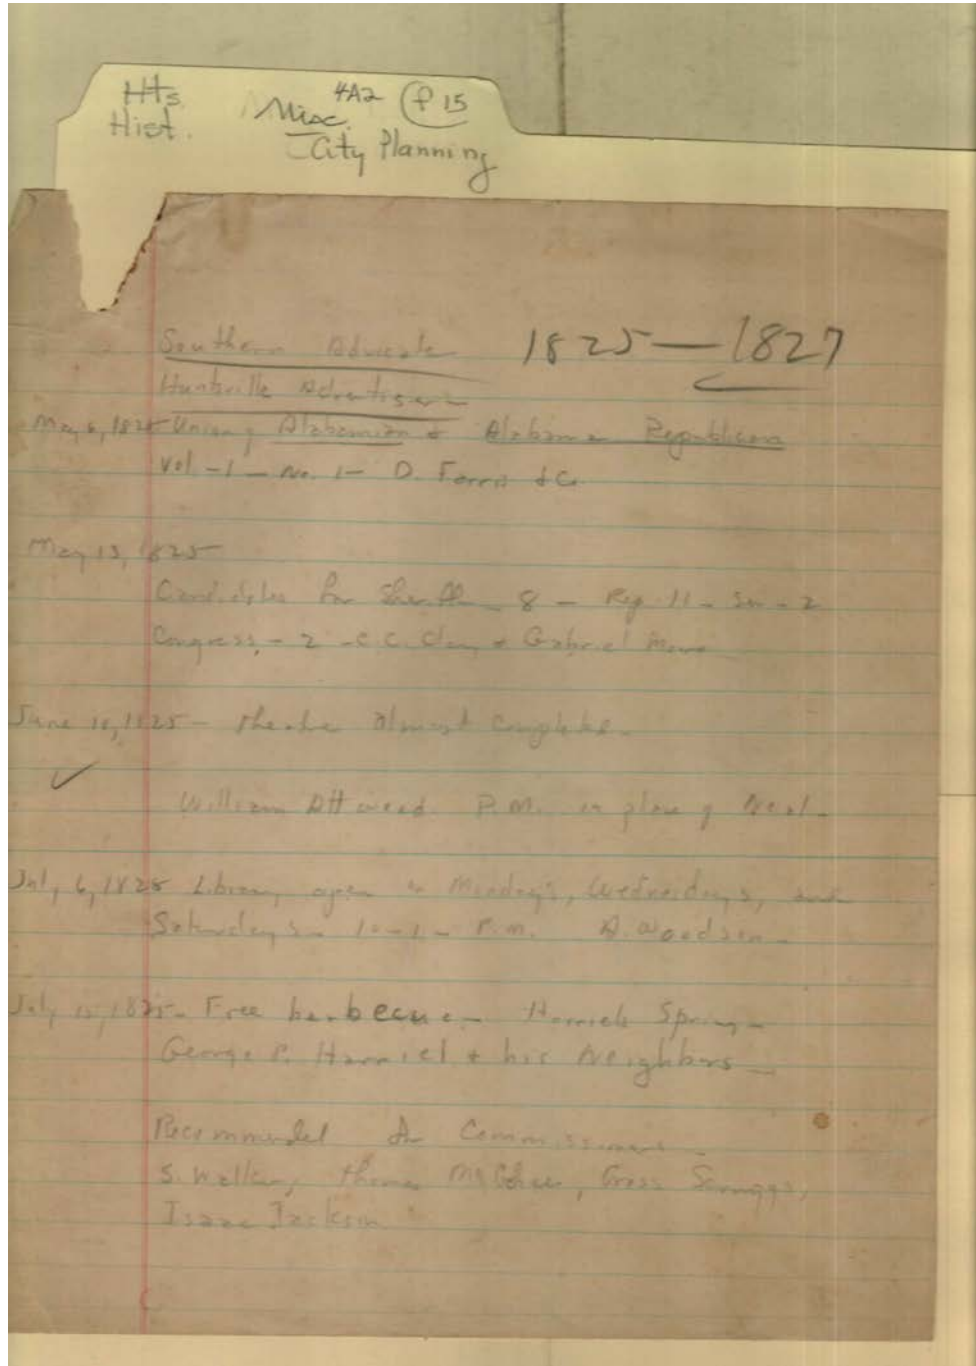 Hts.
Hist.
4A2 f 15
Misc.
City Planning
Southern Advocate 1825 — 1827
Huntsville Advertiser
May 6, 1825 Union of Alabamian & Alabama Republican
Vol. - 1 — No. 1 — D. Farris & Co
May 13, 1825
Candidates for Sheriff — 8 — Rep. 11 — Sen - 2
Congress, - 2 - C.C. Clay & Gabriel Moore
June 10, 1825 — Theatre Almost Completed -
William Attwood P.M. in place of Neal -
July 6, 1825 Library open on Mondays, Wednesdays, and
Saturdays - 10-1 - P.M. A. Woodson -
July 15, 1825 - Free barbecue - Spring -
George P. & his Neighbors —
Recommended for Commissioners -
S. Walker, Thomas Gross Scruggs,
Isaac Jackson